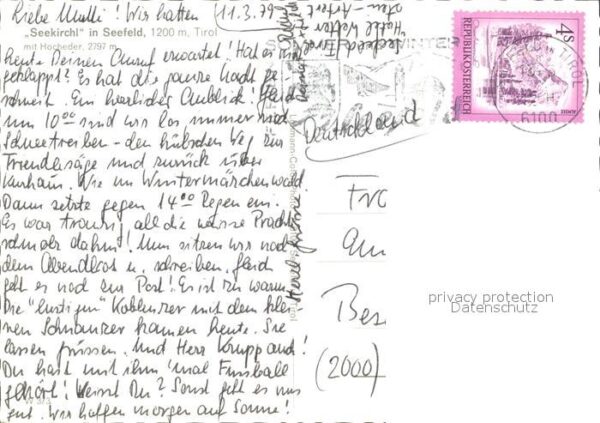 Liebe Mulli! Wir hatten 11.3.79
„Seekirchl" in Seefeld, 1200 m, Tirol
mit Hocheder, 2797 m
heute Deinen Anruf erwartet! Hat es nicht
geklappt? Es hat die ganze Nacht ge-
schneit. Ein herrlicher Anblick! Gleich
um 10⁰⁰ sind wir los immer noch
Schneetreiben - den hübschen Weg zur
Triendlsäge und zurück über
Kurhaus. Wie im Wintermärchenwald
Dann setzte gegen 14⁰⁰ Regen ein.
Es war traurig, all die weisse Pracht
schmolz dahin! Nun sitzen wir nach
dem Abendbrot u. schreiben. Gleich
geht es noch zur Post! Es ist zu warm.
Die "lustigen" Koblenzer mit dem klei-
nen Schnauzer kamen heute. Sie
lassen grüssen. Und Herr Krupp auch!
Du hast mit ihm 'mal Fussball
gehört! Weisst Du? Sonst geht es uns
gut. Wir hoffen morgen auf Sonne!
W 3/3
Herzl. Grüsse
Seefeld/Tirol
WINTER
TIROL
6100
4S
REPUBLIK ÖSTERREICH
Deutschland
Bes
(2000)
privacy protection
Datenschutz